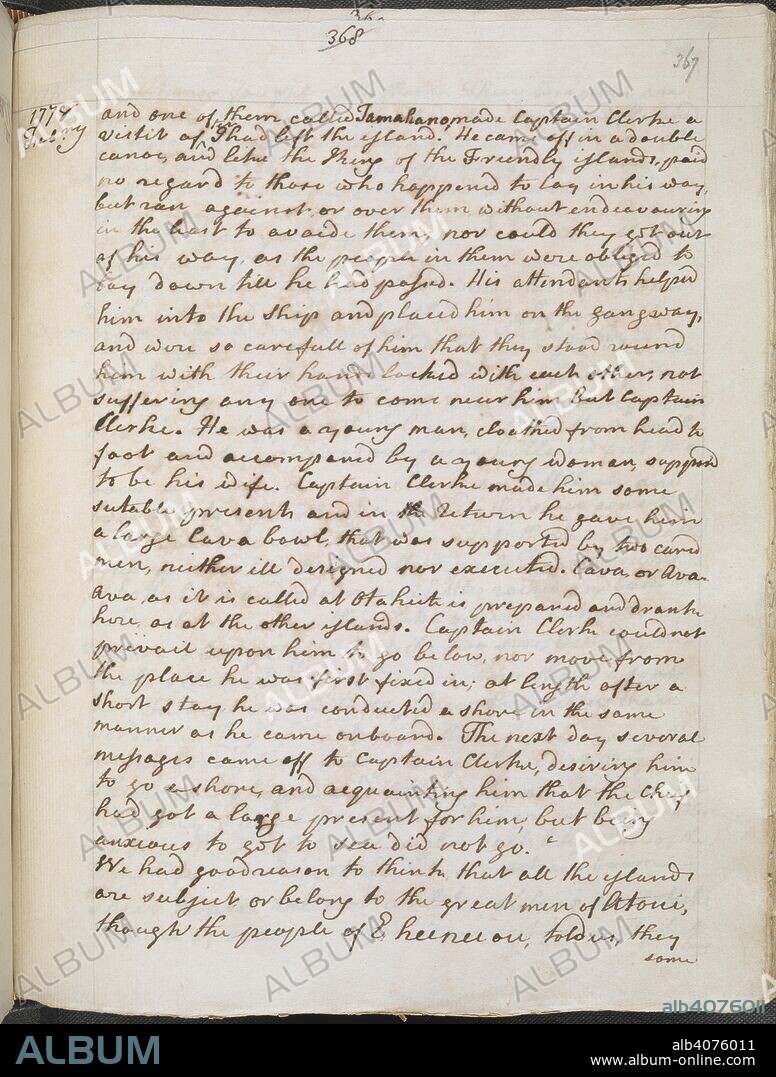 368
367
1778
Feb.ry
and one of them called Tamahano, made Captain Clerke a
visit af.r I had left the island. He came off in a double
canoe, and like the King of the Friendly islands, paid
no regard to those who happened to lay in his way,
but ran against or over them without endeavouring
in the least to avoide them, nor could they get out
of his way, as the people in them were obliged to
lay down till he had passed. His attendants helped
him into the Ship and placed him on the gangway,
and were so carefull of him that they stood round
him with their hands locked with each other, not
suffering any one to come near him but Captain
Clerke. He was a young man, cloathed from head to
foot and accompaned by a young woman, supposed
to be his wife. Captain Clerke made him some
sutable presents and in return he gave him
a large Cava bowl, that was supported by two carved
men, neither ill designed nor executed. Cava, or Ava
Ava, as it is called at Otaheite is prepared and drank
here, as at the other islands. Captain Clerke could not
prevail upon him to go below, nor move from
the place he was first fixed in; at length after a
short stay he was conducted a shore in the same
manner as he came onboard. The next day several
messages came off to Captain Clerke, desiring him
to go a shore, and acquainting him that the Chief
had got a large present for him, but being
anxious to get to sea did not go.
We had good reason to think, that all the islands
are subject, or belong to the great men of Atoui,
though the people of Eheeneeou, told us, they
some
ALBUM
alb4076011
ALBUM
alb4076011
www.album-online.com